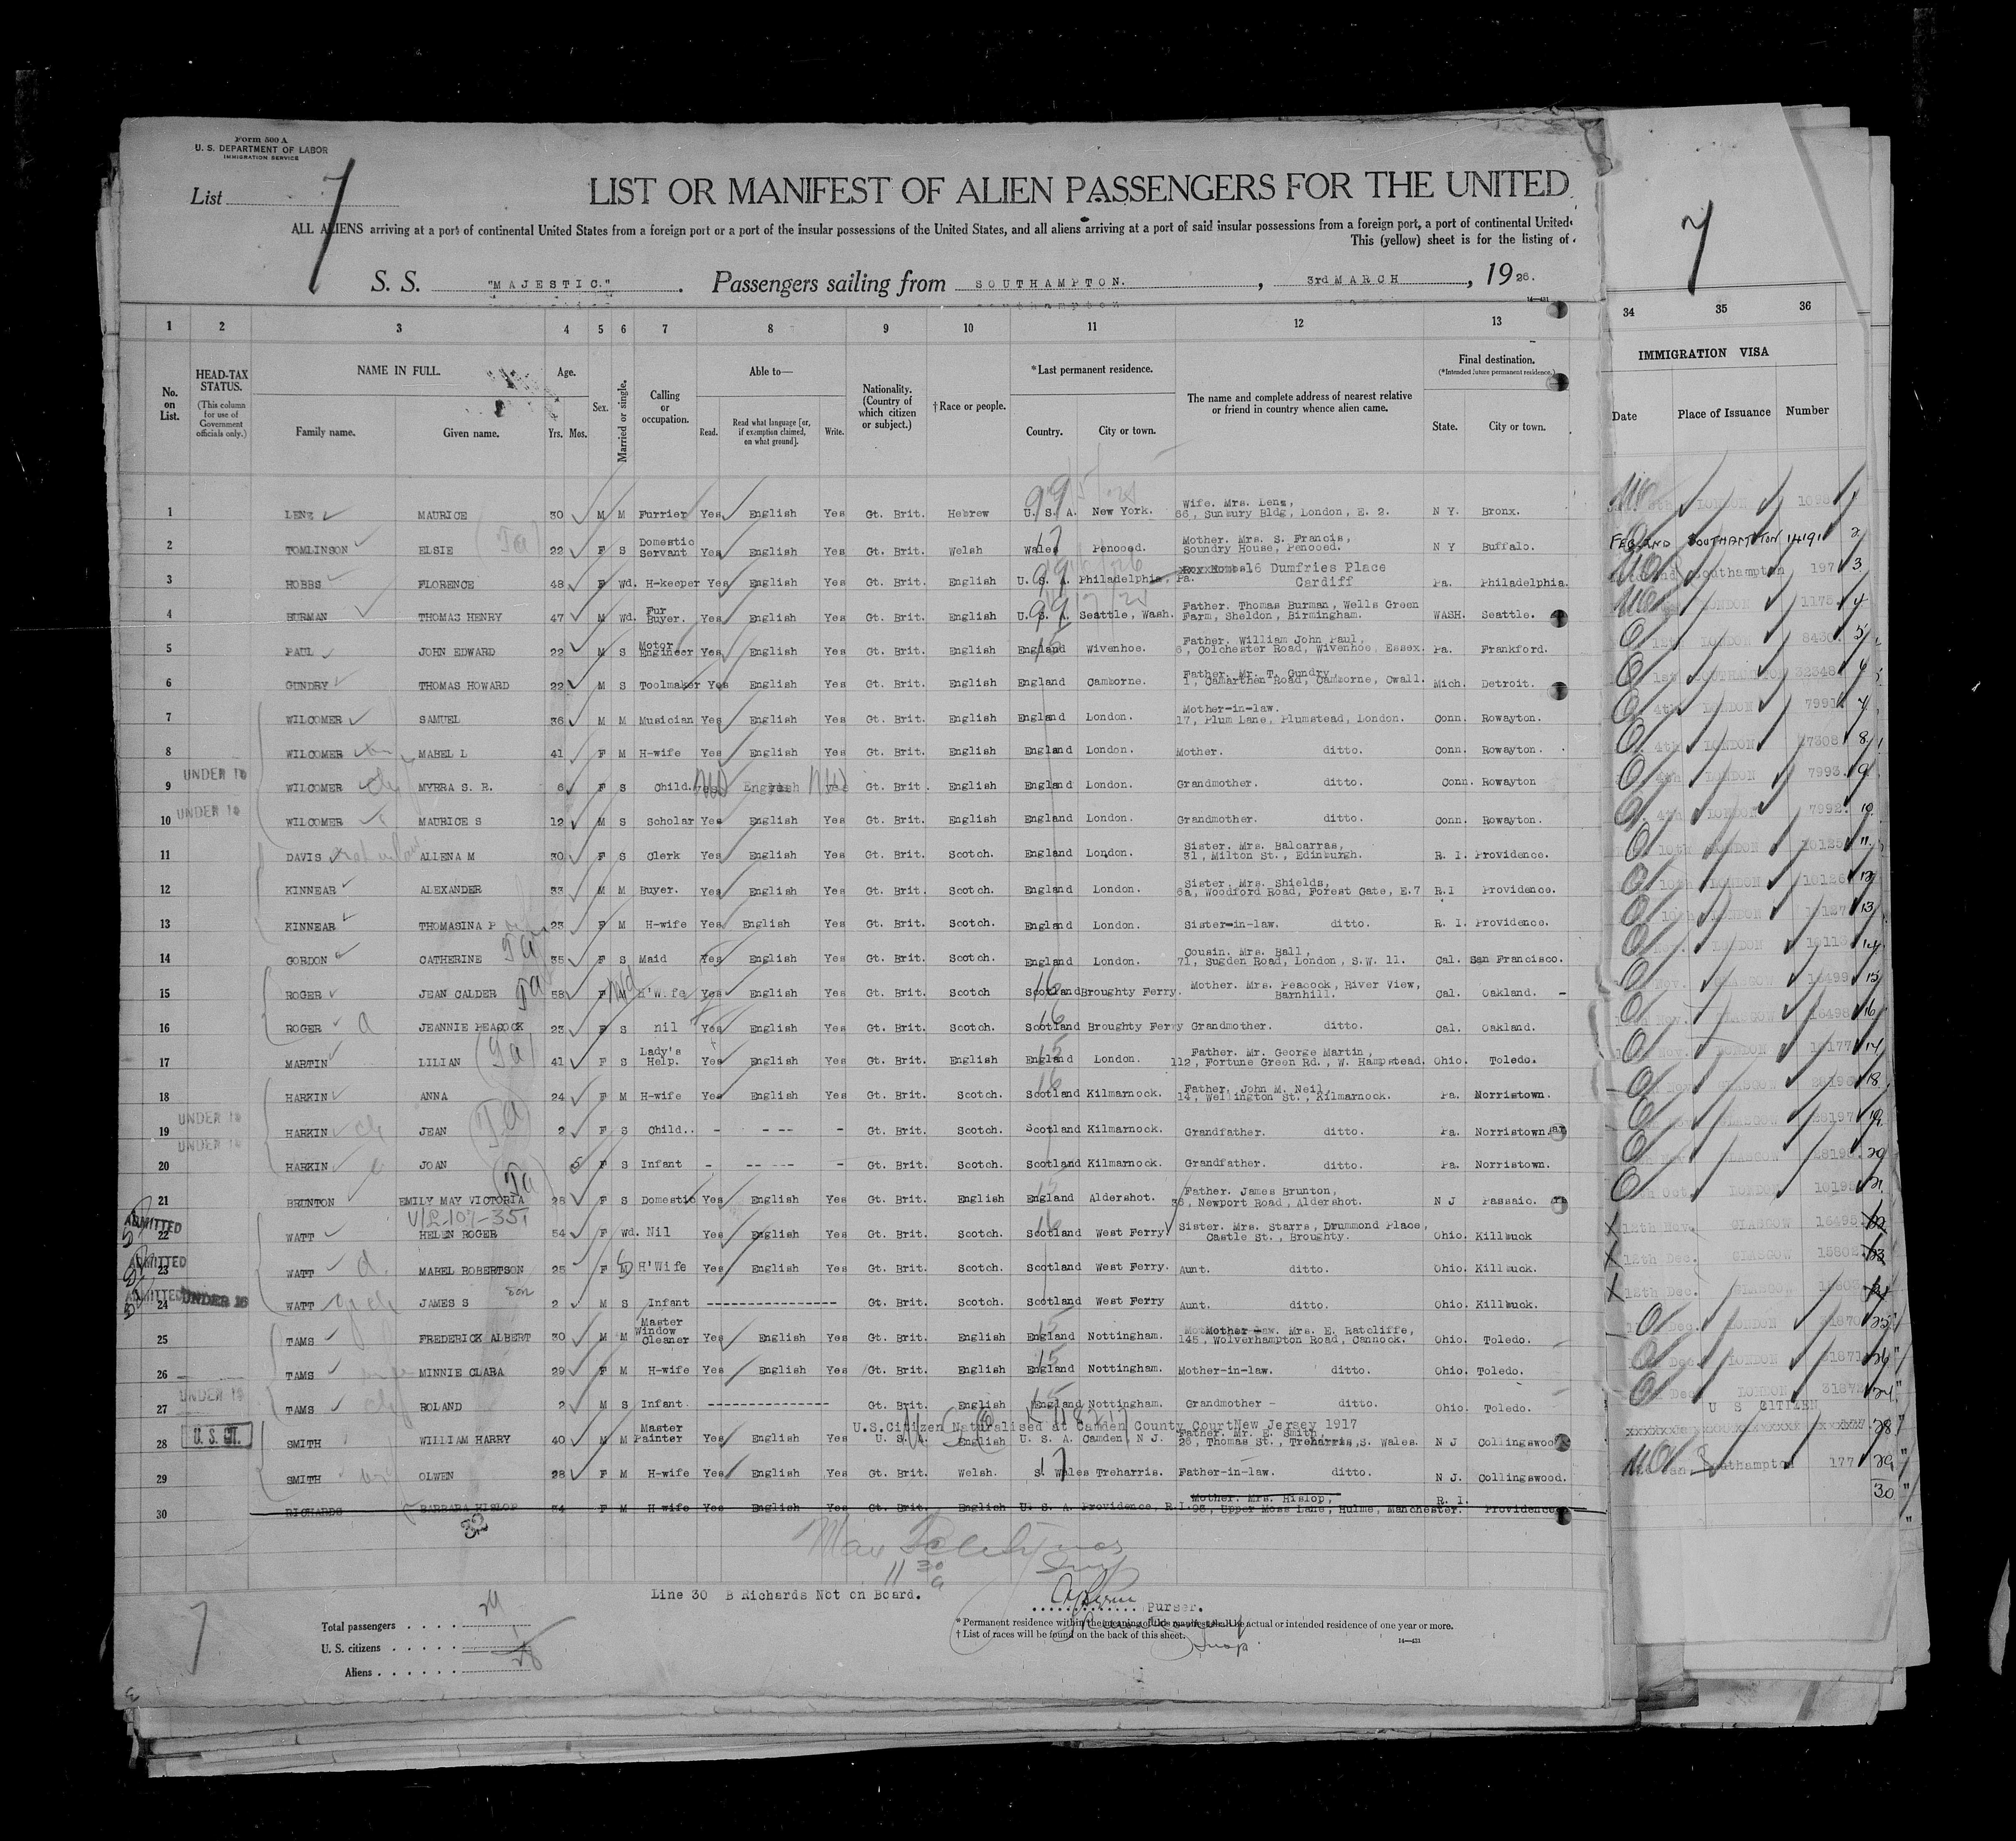 Form 500 A
U. S. DEPARTMENT OF LABOR
IMMIGRATION SERVICE
List 7
LIST OR MANIFEST OF ALIEN PASSENGERS FOR THE UNITED
ALL ALIENS arriving at a port of continental United States from a foreign port or a port of the insular possessions of the United States, and all aliens arriving at a port of said insular possessions from a foreign port, a port of continental United
This (yellow) sheet is for the listing of
S. S. "MAJESTIC." Passengers sailing from SOUTHAMPTON. , 3rd MARCH , 19 26.
7
1 2 3 4 5 6 7 8 9 10 11 12 13 34 35 36
No. on List.
HEAD-TAX STATUS.
(This column for use of Government officials only.)
NAME IN FULL.
Family name. Given name.
Age.
Yrs. Mos.
Sex.
Married or single.
Calling or occupation.
Able to—
Read. Read what language [or, if exemption claimed, on what ground]. Write.
Nationality. (Country of which citizen or subject.)
†Race or people.
*Last permanent residence.
Country. City or town.
The name and complete address of nearest relative or friend in country whence alien came.
Final destination.
(*Intended future permanent residence.)
State. City or town.
IMMIGRATION VISA
Date Place of Issuance Number
1 LENZ MAURICE 30 M M Furrier Yes English Yes Gt. Brit. Hebrew U. S. A. New York. Wife. Mrs. Lenz, 66, Sunbury Bldg, London, E. 2. N Y. Bronx. LONDON 1
2 TOMLINSON ELSIE 22 F S Domestic Servant Yes English Yes Gt. Brit. Welsh Wales Pencoed. Mother. Mrs. S. Francis, Soundry House, Pencoed. N Y Buffalo. SOUTHAMPTON 14191 2
3 HOBBS FLORENCE 48 F Wd. H-keeper Yes English Yes Gt. Brit. English U. S. A. Philadelphia, Pa. 16 Dumfries Place Cardiff Pa. Philadelphia. Southampton 197 3
4 BURMAN THOMAS HENRY 47 M Wd. Fur Buyer. Yes English Yes Gt. Brit. English U. S. A. Seattle, Wash. Father. Thomas Burman, Wells Green Farm, Sheldon, Birmingham. WASH. Seattle. LONDON 1175 4
5 PAUL JOHN EDWARD 22 M S Motor Engineer Yes English Yes Gt. Brit. English England Wivenhoe. Father. William John Paul, 6, Colchester Road, Wivenhoe, Essex. Pa. Frankford. 12th LONDON 8430 5
6 GUNDRY THOMAS HOWARD 22 M S Toolmaker Yes English Yes Gt. Brit. English England Camborne. Father. Mr. T. Gundry, 1, Camarthen Road, Camborne, Cwall. Mich. Detroit. 1st SOUTHAMPTON 32348 6
7 WILCOMER SAMUEL 36 M M Musician Yes English Yes Gt. Brit. English England London. Mother-in-law. 17, Plum Lane, Plumstead, London. Conn. Rowayton. 4th LONDON 7991 7
8 WILCOMER MABEL L 41 F M H-wife Yes English Yes Gt. Brit. English England London. Mother. ditto. Conn. Rowayton. 4th LONDON 8
UNDER 16
9 WILCOMER MYRRA S. R. 6 F S Child. No English No Gt. Brit. English England London. Grandmother. ditto. Conn. Rowayton 4th LONDON 7993. 9
UNDER 16
10 WILCOMER MAURICE S 12 M S Scholar Yes English Yes Gt. Brit. English England London. Grandmother. ditto. Conn. Rowayton. 4th LONDON 7992 10
11 DAVIS ALLENA M 30 F S Clerk Yes English Yes Gt. Brit. Scotch. England London. Sister. Mrs. Balcarras, 31, Milton St., Edinburgh. R. I. Providence. 10th LONDON 10125 11
12 KINNEAR ALEXANDER 33 M M Buyer. Yes English Yes Gt. Brit. Scotch. England London. Sister. Mrs. Shields, 6a, Woodford Road, Forest Gate, E.7 R.I Providence. 10th LONDON 10126 12
13 KINNEAR THOMASINA P 23 F M H-wife Yes English Yes Gt. Brit. Scotch. England London. Sister-in-law. ditto. R. I. Providence. 10th LONDON 10127 13
14 GORDON CATHERINE 35 F S Maid Yes English Yes Gt. Brit. Scotch. England London. Cousin. Mrs. Ball, 71, Sugden Road, London, S.W. 11. Cal. San Francisco. Nov. LONDON 14
15 ROGER JEAN CALDER 58 F Wd H'Wife Yes English Yes Gt. Brit. Scotch Scotland Broughty Ferry. Mother. Mrs. Peacock, River View, Barnhill. Cal. Oakland. Nov. GLASGOW 16499 15
16 ROGER JEANNIE PEACOCK 23 F S nil Yes English Yes Gt. Brit. Scotch. Scotland Broughty Ferry Grandmother. ditto. Cal. Oakland. Nov. GLASGOW 16498 16
17 MARTIN LILIAN 41 F S Lady's Help. Yes English Yes Gt. Brit. English England London. Father. Mr. George Martin, 112, Fortune Green Rd., W. Hampstead. Ohio. Toledo. Nov. LONDON 17
18 HARKIN ANNA 24 F M H-wife Yes English Yes Gt. Brit. Scotch. Scotland Kilmarnock. Father. John M. Neil, 14, Wellington St., Kilmarnock. Pa. Norristown. GLASGOW 28196 18
UNDER 16
19 HARKIN JEAN 2 F S Child.. - - -- - Gt. Brit. Scotch. Scotland Kilmarnock. Grandfather. ditto. Pa. Norristown. GLASGOW 28197 19
UNDER 16
20 HARKIN JOAN 5 F S Infant - -- --- - Gt. Brit. Scotch. Scotland Kilmarnock. Grandfather. ditto. Pa. Norristown. GLASGOW 28198 20
21 BRUNTON EMILY MAY VICTORIA 28 F S Domestic Yes English Yes Gt. Brit. English England Aldershot. Father. James Brunton, 36, Newport Road, Aldershot. N J Passaic. Oct. LONDON 21
V/L-107-351
ADMITTED
22 WATT HELEN ROGER 54 F Wd. Nil Yes English Yes Gt. Brit. Scotch. Scotland West Ferry Sister. Mrs. Starrs, Drummond Place, Castle St., Broughty. Ohio. Killbuck 12th Nov. GLASGOW 16495 22
ADMITTED
23 WATT MABEL ROBERTSON 25 F M H'Wife Yes English Yes Gt. Brit. Scotch. Scotland West Ferry. Aunt. ditto. Ohio. Killbuck. 12th Dec. GLASGOW 15802 23
ADMITTED UNDER 16
24 WATT JAMES S son 2 M S Infant ---------------- Gt. Brit. Scotch. Scotland West Ferry Aunt. ditto. Ohio. Killbuck. 12th Dec. GLASGOW 15803 24
25 TAMS FREDERICK ALBERT 30 M M Master Window Cleaner Yes English Yes Gt. Brit. English England Nottingham. Mother-law. Mrs. E. Ratcliffe, 145, Wolverhampton Road, Cannock. Ohio. Toledo. Dec. LONDON 31870 25
26 TAMS MINNIE CLARA 29 F M H-wife Yes English Yes Gt. Brit. English England Nottingham. Mother-in-law. ditto. Ohio. Toledo. Dec. LONDON 31871 26
UNDER 16
27 TAMS ROLAND 2 M S Infant. --------------- Gt. Brit. English England Nottingham. Grandmother - ditto. Ohio. Toledo. Dec. LONDON 31872 27
U.S.Citizen Naturalised at Camden County Court New Jersey 1917 U S CITIZEN
U. S. CIT.
28 SMITH WILLIAM HARRY 40 M M Master Painter Yes English Yes U. S. A. English U. S. A. Camden, N J. Father. Mr. E. Smith, 26, Thomas St., Treharris, S. Wales. N J Collingswood 28
29 SMITH OLWEN 28 F M H-wife Yes English Yes Gt. Brit. Welsh. S. Wales Treharris. Father-in-law. ditto. N J. Collingswood. Southampton 177 29
30 RICHARDS BARBARA HISLOP 34 F M H-wife Yes English Yes Gt. Brit. English U. S. A. Providence, R.I. Mother. Mrs. Hislop, 98, Upper Moss Lane, Hulme, Manchester. R. I. Providence 30
32
11 30 a
Line 30 B Richards Not on Board.
purser.
Total passengers
U. S. citizens
Aliens
7
* Permanent residence within the meaning of this manifest shall be actual or intended residence of one year or more.
† List of races will be found on the back of this sheet.
14—431